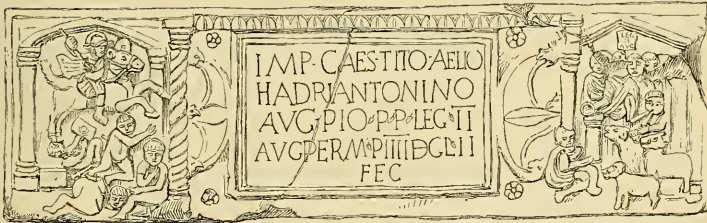 IMP·CAES·TITO·AELIO
HADRI·ANTONINO
AVG·PIO·P·P·LEG·II
AVG·PER·M·P·IIIIDCLII
FEC
LEG
AVG